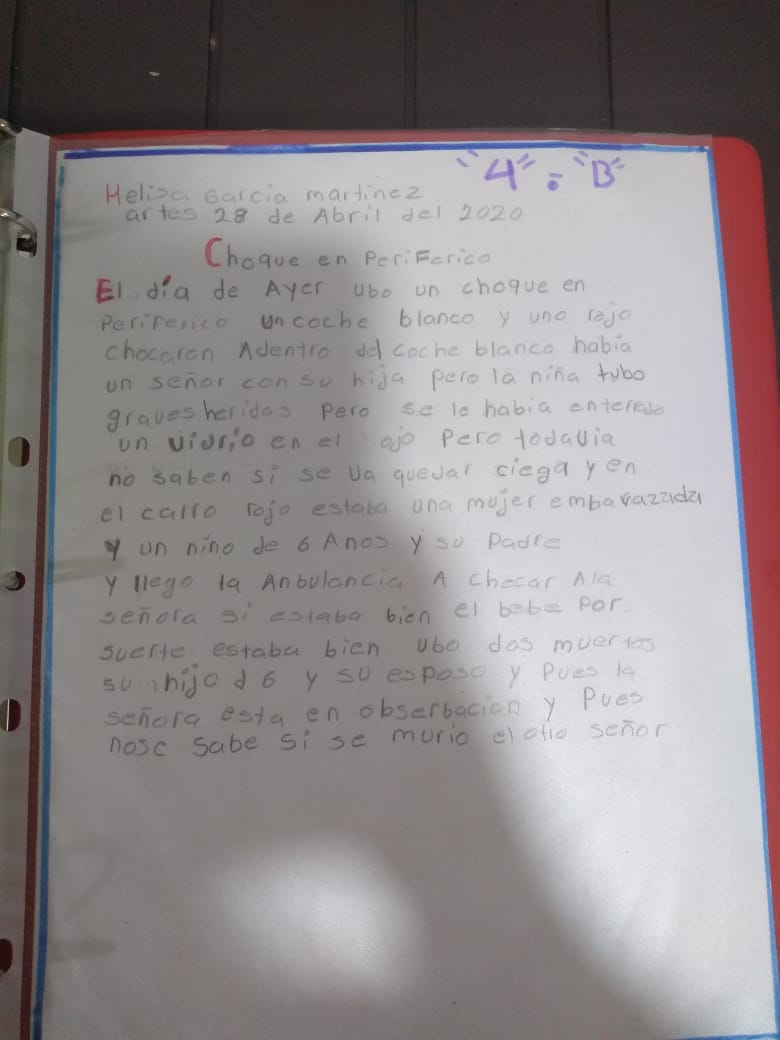 "4" : "B"
Meliza Garcia martinez
artes 28 de Abril del 2020
Choque en PeriFerico
El día de Ayer ubo un choque en
Periferico un coche blanco y uno rojo
chocaron Adentro del coche blanco había
un señor con su hija pero la niña tubo
graves heridas Pero se le habia enterrado
un vidrio en el ojo Pero todavia
no saben si se va quedar ciega y en
el carro rojo estaba una mujer embarazzida
y un nino de 6 Anos y su Padre
y llego la Anbulancia A checar Ala
señora si estaba bien el bebe Por
suerte estaba bien ubo dos muertos
su hijo d 6 y su esposo y Pues la
señora esta en obserbacion y Pues
nose sabe si se murio el otro señor